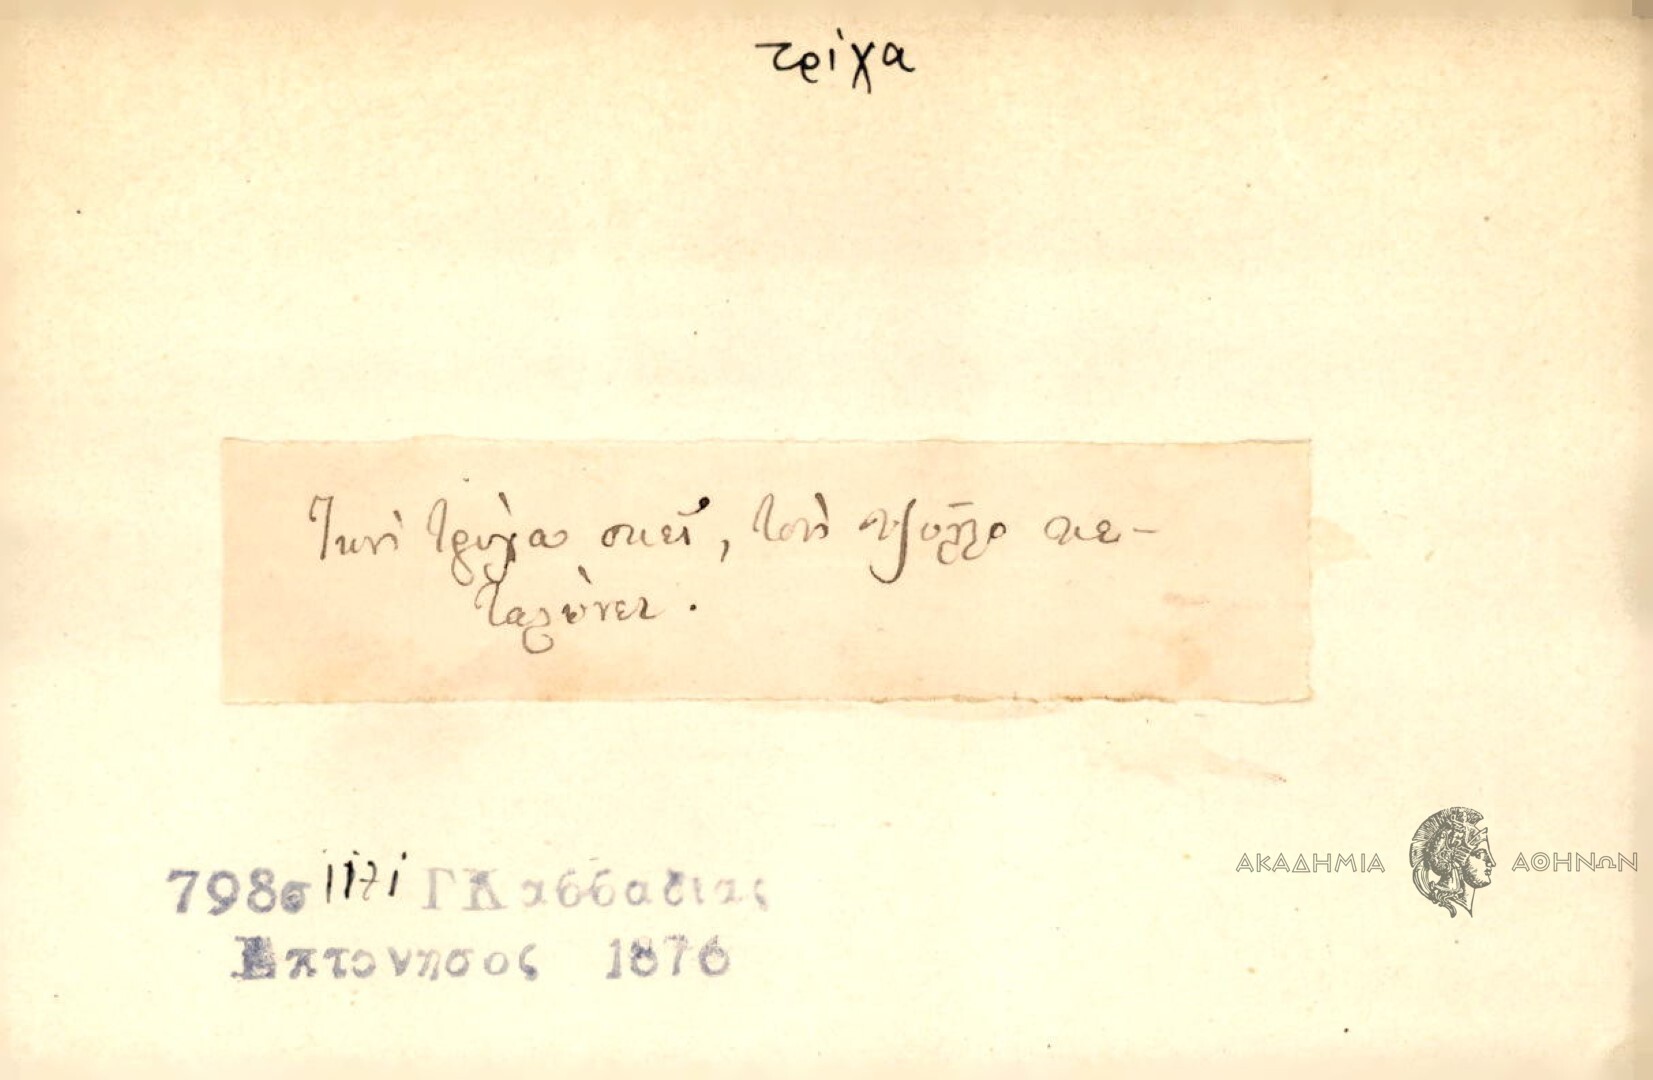 τρίχα
Τὴν τρύχα σκεῖ, τὸν ψύλλο κε-
ταλύνει.
798σ 1171 Γ Καββαδιας
Επτονησος 1876
ΑΚΑΔΗΜΙΑ ΑΘΗΝΩΝ